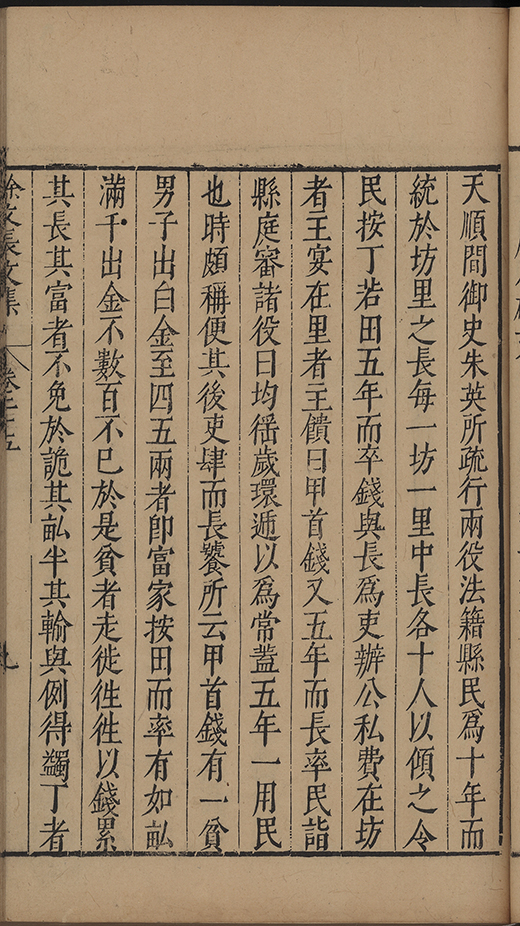 天順間御史朱英所疏行兩役法籍縣民爲十年而
統於坊里之長每一坊一里中長各十人以傾之令
民按丁若田五年而卒錢與長爲吏辦公私費在坊
者主宴在里者主饋曰甲首錢又五年而長率民詣
縣庭審諸役曰均徭歲環逓以爲常蓋五年一用民
也時頗稱便其後吏肆而長饕所云甲首錢有一貧
男子出白金至四五兩者卽富家按田而率有如畝
滿千出金不數百不巳於是貧者走徙徃徃以錢累
其長其富者不免於詭其畝半其輸與例得蠲丁者
徐文長文集 卷二十五 九